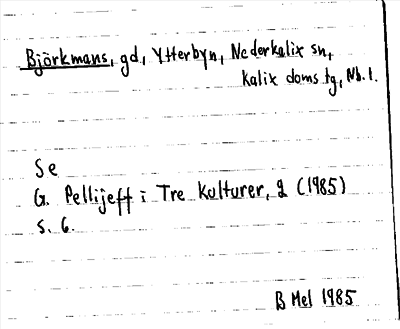 Björkmans, gd., Ytterbyn, Nederkalix sn,
Kalix doms.tg, Nb. l.
Se
G. Pellijeff i Tre Kulturer, 2 (1985)
s. 6.
B Mel 1985